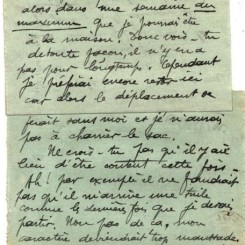 alors dans une semaine au
maximum que je pourrai être
à la maison. Donc vois-tu
de toute façon, il n'y en a
pas pour longtemps. Cependant
je préférerai encore rester ici
car alors le déplacement se
ferait sans moi et je n'aurai
pas à charrier le sac.
Ne crois-tu pas qu'il y ait
lieu d'être content cette fois
Ah! par exemple il ne faudrait
pas qu'il m'arrive une tuile
comme la dernière fois que je devais
partir. Non pas de ça, mon
caractère deviendrait trop maussade.